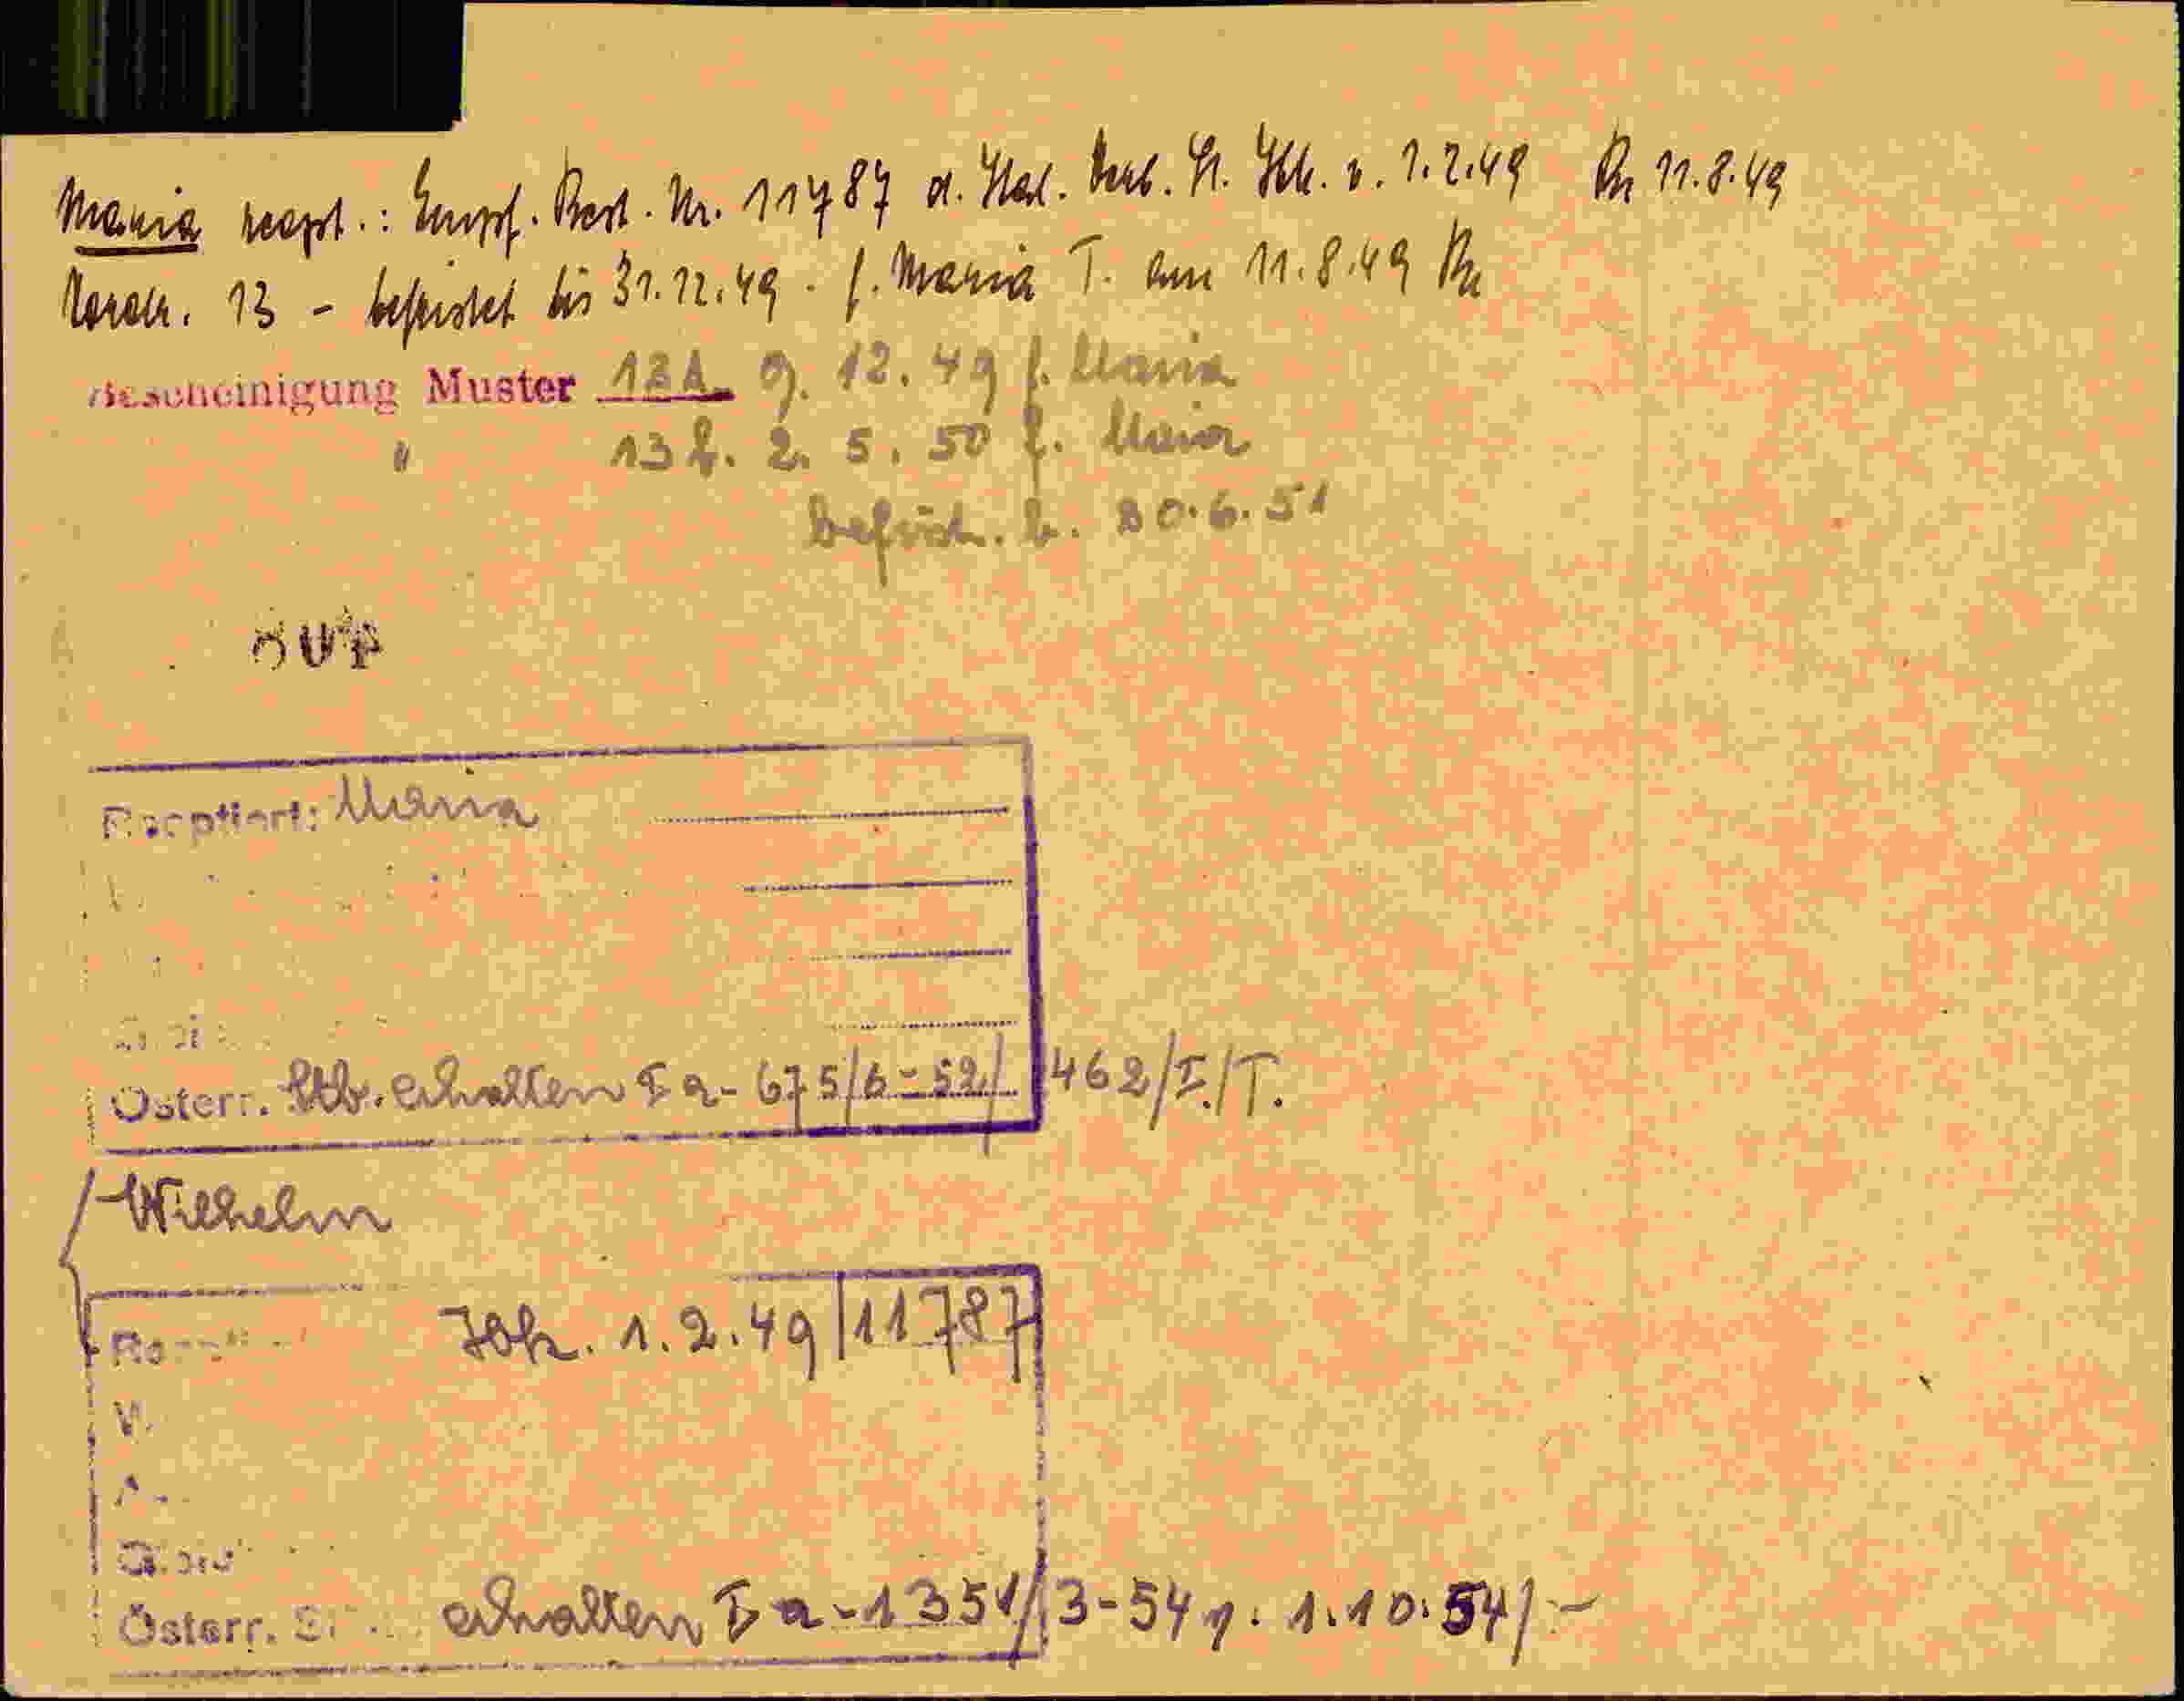 Maria reopt.: Empf. Best. Nr. 11787 d. Ital. Verb. St. Ibk. v. 1.2.49 Rn 11.8.49
Vordr. 13 - befristet bis 31.12.49 . f. Maria T. am 11.8.49 Rn
Bescheinigung Muster 13A 9. 12. 49 f. Maria
" 13 b. 2. 5. 50 f. Maria
befrist. b. 30.6.51
Reoptiert: Maria
Österr. Stb. erhalten I a - 675/6-52/ 462/I./T.
Wilhelm
Ibk. 1.2.49/11787
Österr. erhalten I a - 1351/3-54 v. 1.10.54/-